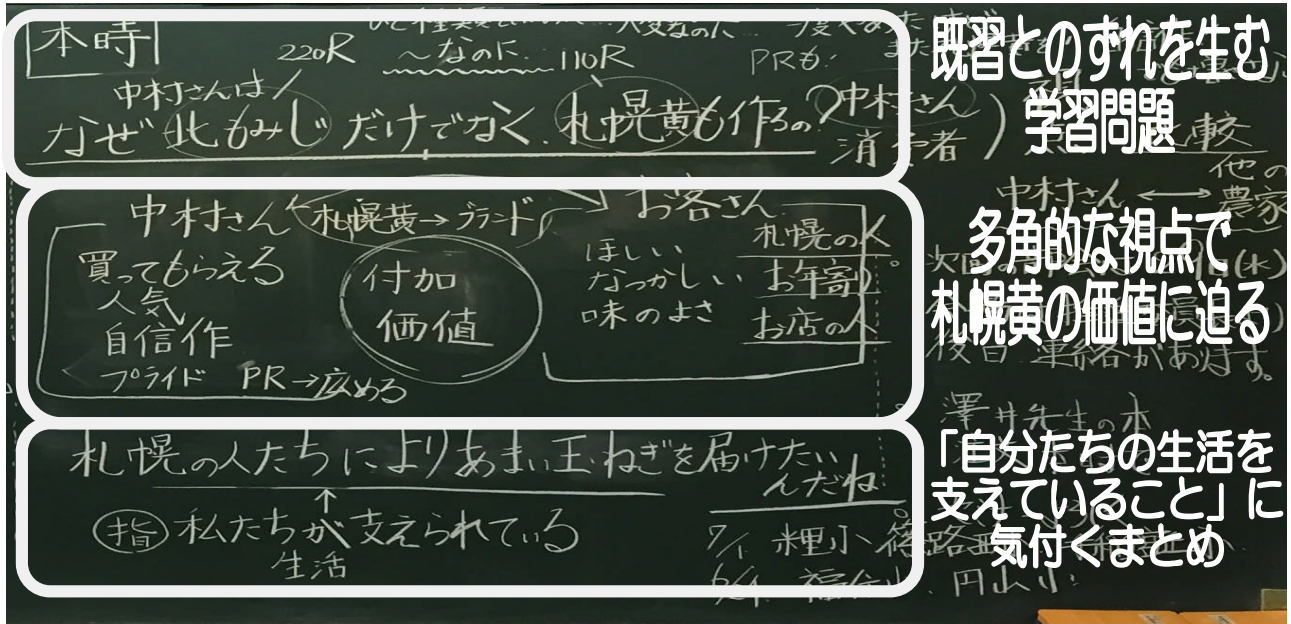 本時
220R
〜なのに…
110R
PRも!
中村さんは
なぜ 北もみじ だけでなく、札幌黄も作るの?
中村さん
消
者
既習とのずれを生む
学習問題
較
他の
農家
中村さん ⟷
中村さん
札幌黄→ブランド
お客さん
買ってもらえる
人気
自信作
プライド PR→広める
付加
価値
ほしい
なつかしい
味のよさ
札幌の人
お年寄り
お店の人
多角的な視点で
札幌黄の価値に迫る
(水)
後日 連絡があります。
澤井先生の本
札幌の人たちによりあまい玉ねぎを届けたい
んだね。
↑
指 私たちが支えられている
生活
「自分たちの生活を
支えていること」に
気付くまとめ
円山小